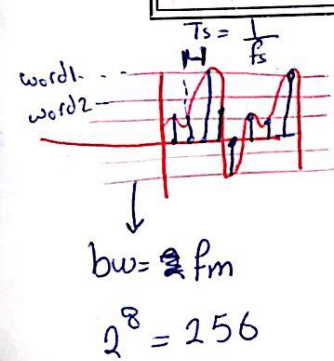 Ts = 1/fs
word1
word2
bw= fm
2^8 = 256